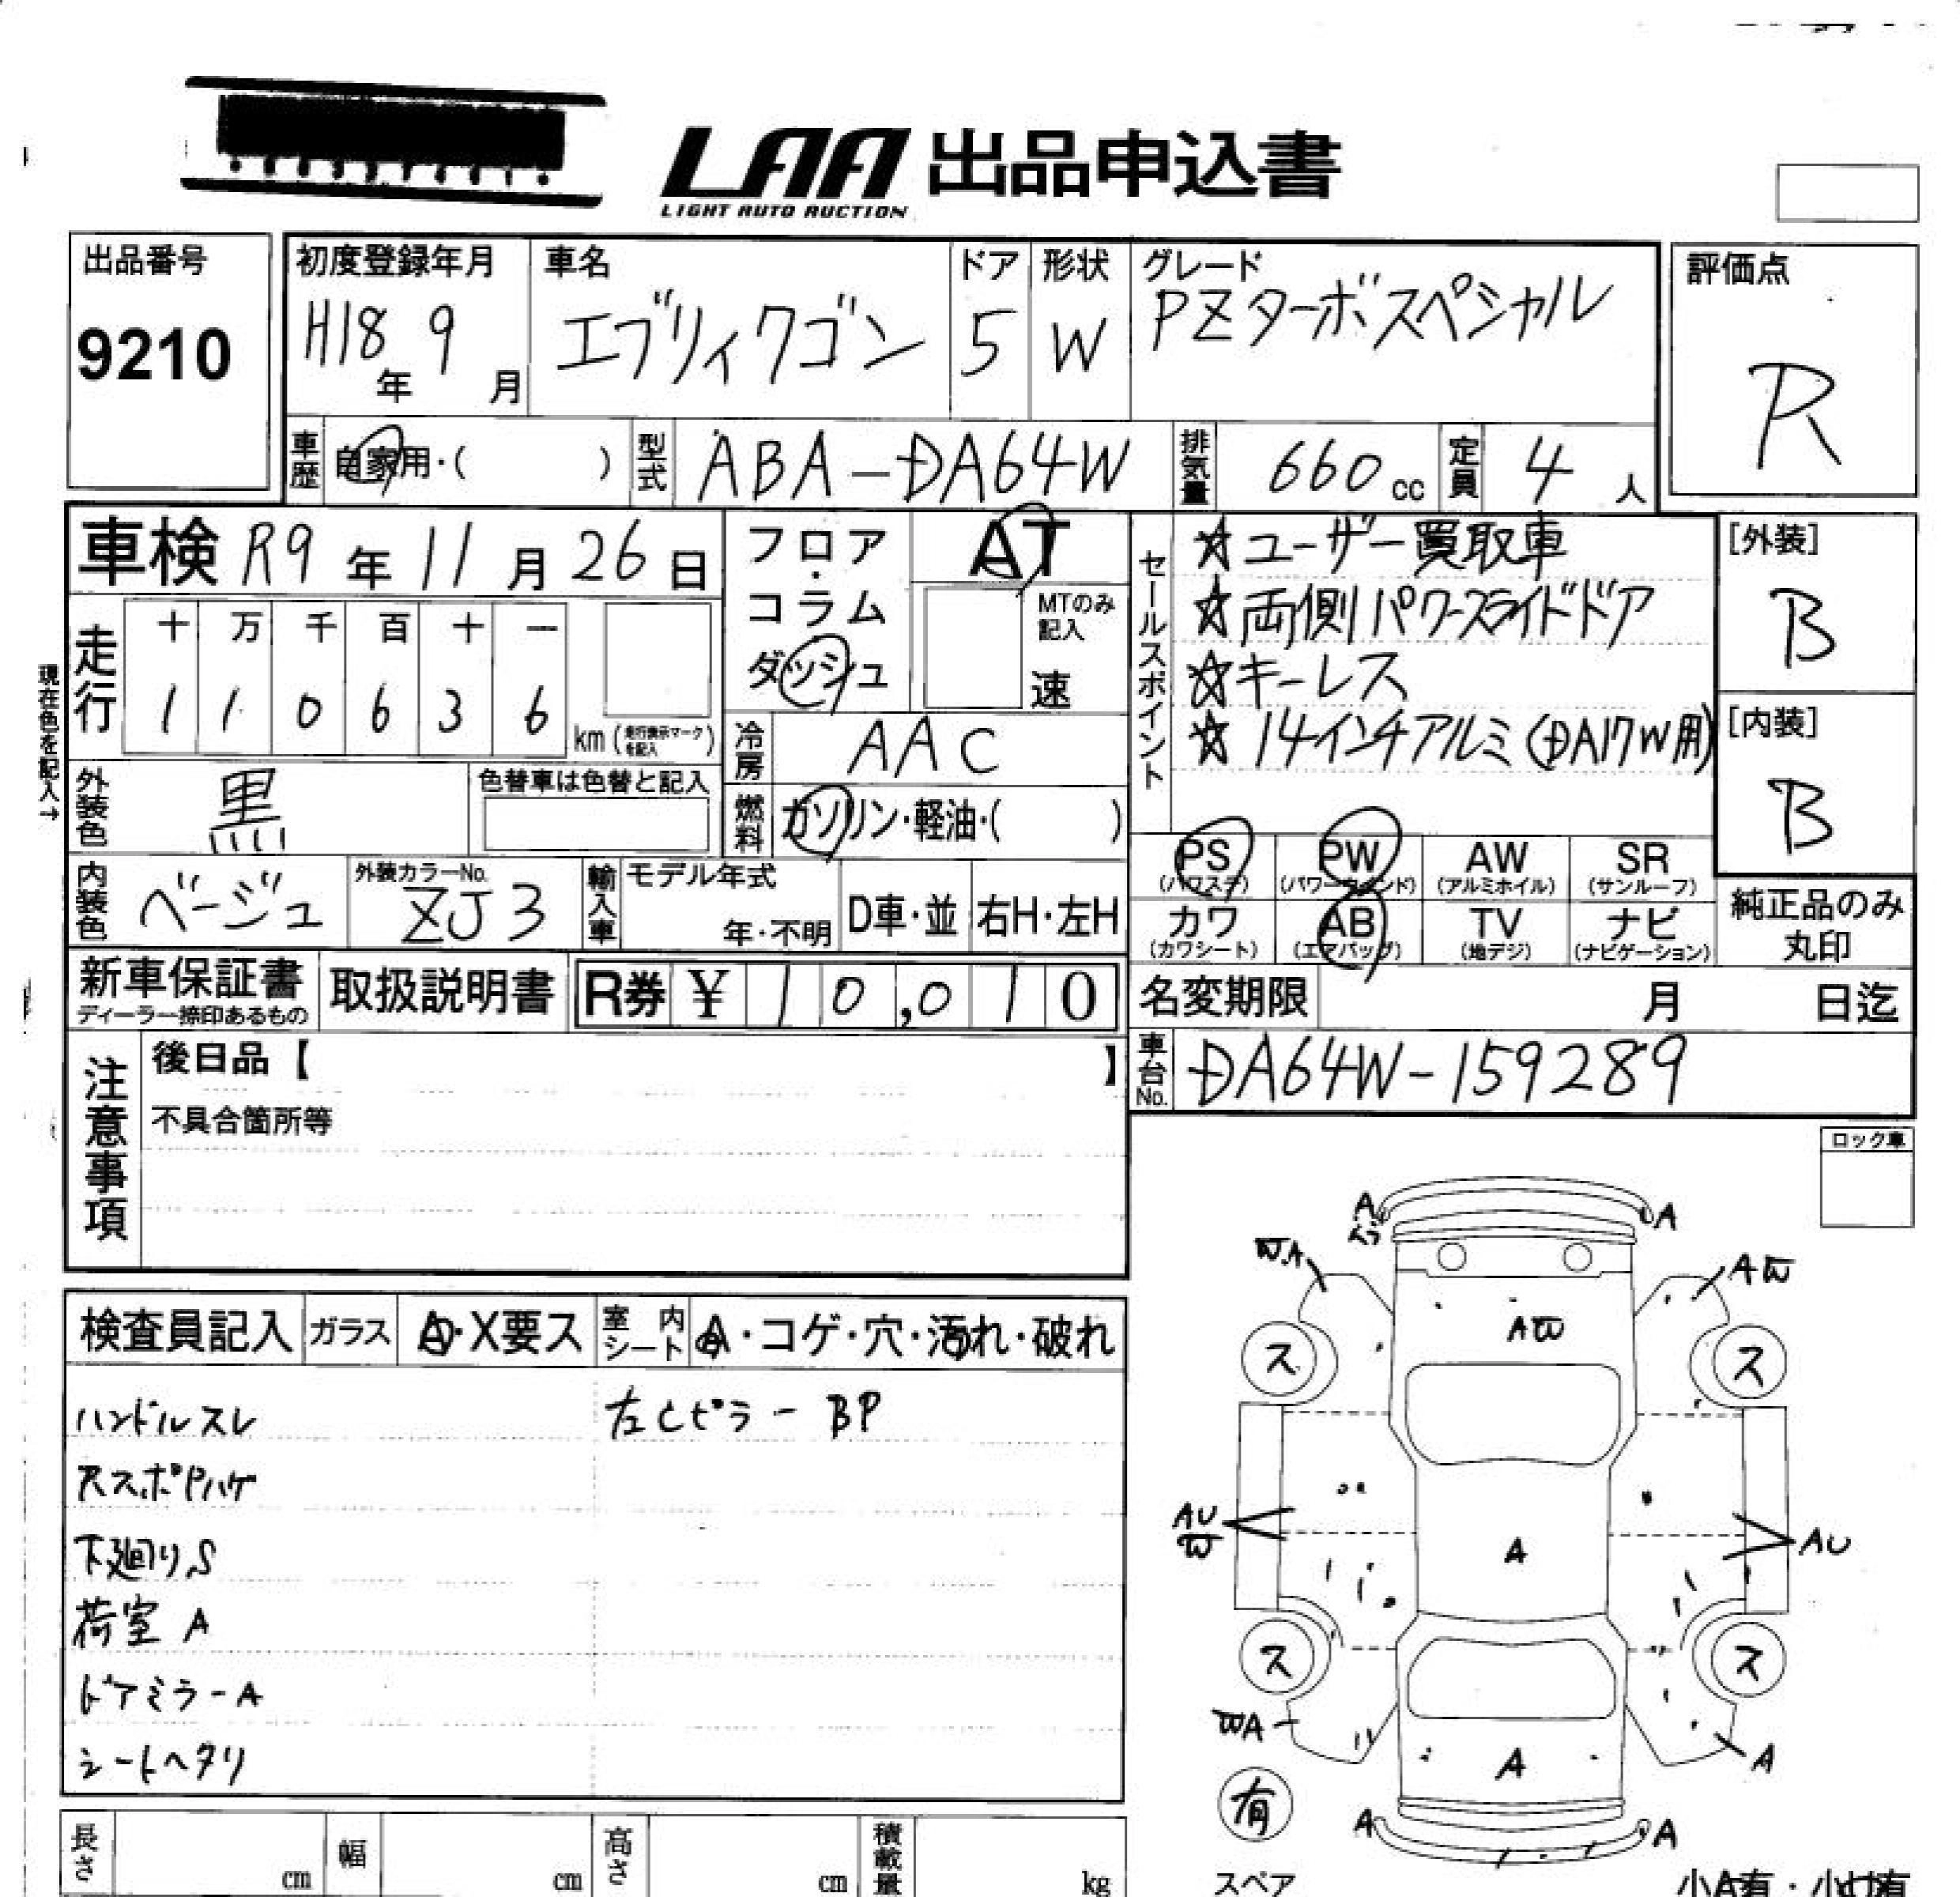 LAA 出品申込書
LIGHT AUTO AUCTION
出品番号
9210
初度登録年月
H18年 9月
車名
エブリィワゴン
ドア
5
形状
W
グレード
PZターボスペシャル
評価点
R
車歴
自家用・( )
型式
ABA-DA64W
排気量
660cc
定員
4人
車検 R9年11月26日
走行
十 万 千 百 十 一
1 1 0 6 3 6 km (走行表示マークを記入)
現在色を記入→
外装色
黒
色替車は色替と記入
内装色
ベージュ
外装カラーNo.
ZJ3
フロア・コラム
ダッシュ
AT
MTのみ記入
速
冷房
AAC
燃料
ガソリン・軽油・( )
輸入車
モデル年式
年・不明
D車・並
右H・左H
セールスポイント
☆ユーザー買取車
☆両側パワースライドドア
☆キーレス
☆14インチアルミ(DA17W用)
[外装]
B
[内装]
B
PS (パワステ)
PW (パワーウィンド)
AW (アルミホイル)
SR (サンルーフ)
カワ (カワシート)
AB (エアバッグ)
TV (地デジ)
ナビ (ナビゲーション)
純正品のみ丸印
新車保証書
ディーラー捺印あるもの
取扱説明書
R券 ¥ 10,010
名変期限 月 日迄
車台No.
DA64W-159289
注意事項
後日品【 】
不具合箇所等
ロック車
検査員記入
ガラス
A・X要ス
室内シート
A・コゲ・穴・汚れ・破れ
ハンドルスレ
左Cピラー BP
RスポPハゲ
下廻りS
荷室 A
ドアミラーA
シートヘタリ
A
A
WA
AW
AW
ス
ス
AU
W
A
AU
ス
ス
WA
A
A
有
A
A
スペア
小A有・小U有
長さ cm
幅 cm
高さ cm
積載量 kg